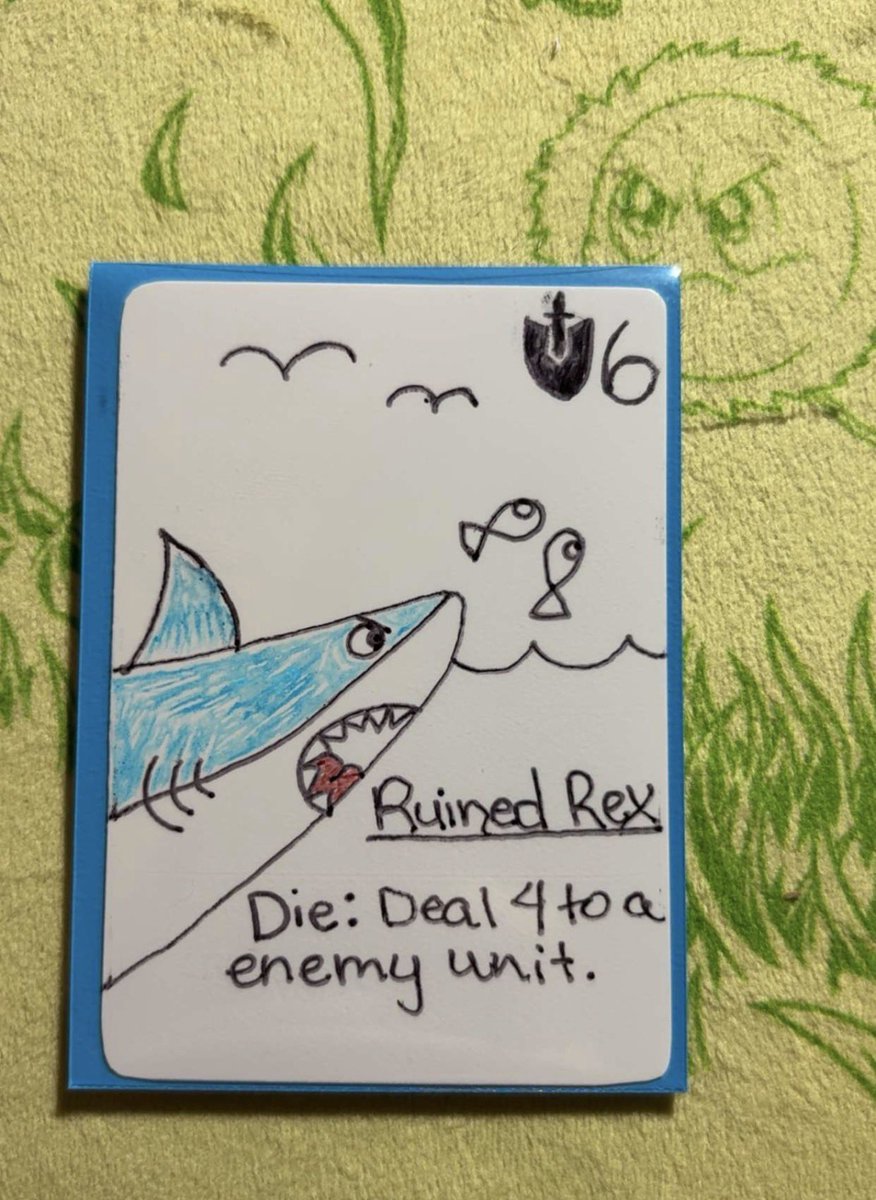 6
Ruined Rex
Die: Deal 4 to a
enemy unit.